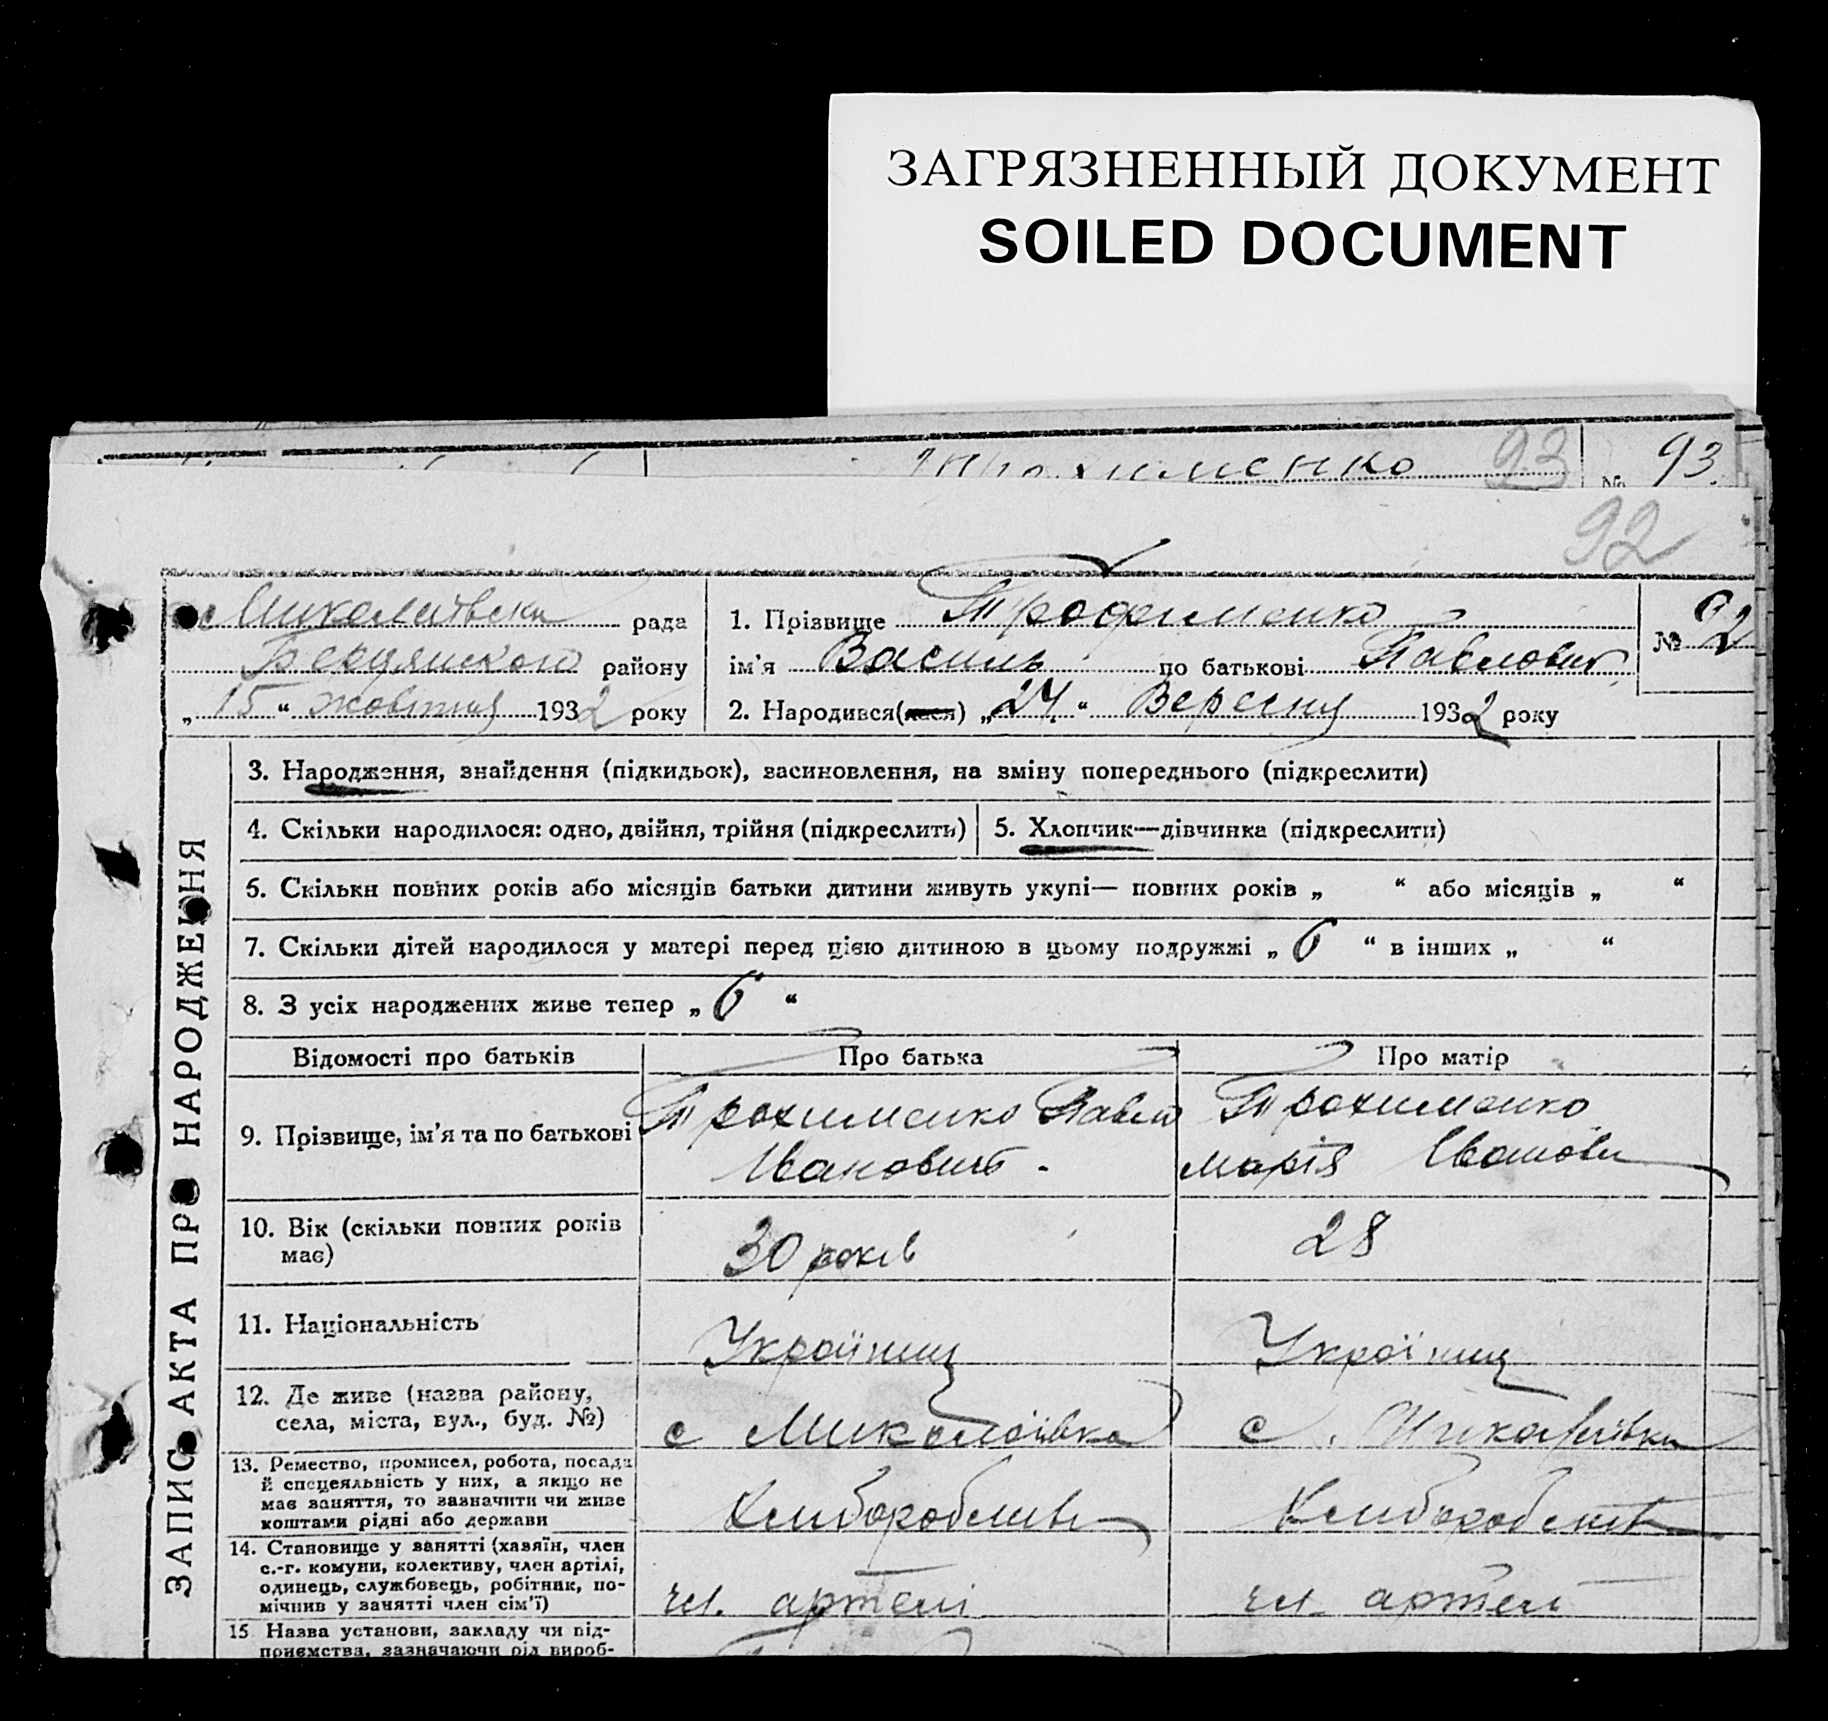 ЗАГРЯЗНЕННЫЙ ДОКУМЕНТ
SOILED DOCUMENT
Трохименко 93 № 93.
92
с Миколаївська рада
Бердянського району
„ 15 “ жовтня 1932 року
1. Прізвище Трофименко
ім'я Василь по батькові Павлович
№ 92
2. Народився(лася) „ 24. “ Вересня 1932 року
ЗАПИС АКТА ПРО НАРОДЖЕННЯ
3. Народження, знайдення (підкидьок), засиновлення, на зміну попереднього (підкреслити)
4. Скільки народилося: одно, двійня, трійня (підкреслить)
5. Хлопчик—дівчинка (підкреслити)
5. Скільки повних років або місяців батьки дитини живуть укупі— повних років „ “ або місяців „ “
7. Скільки дітей народилося у матері перед цією дитиною в цьому подружжі „ 6 “ в інших „ “
8. З усіх народжених живе тепер „ 6 “
Відомості про батьків Про батька Про матір
9. Прізвище, ім'я та по батькові
Трохименко Павло
Іванович.
Трохименко
марія Іванові
10. Вік (скільки повних років
має)
30 років
28
11. Національність
Україниц
Україниц
12. Де живе (назва району,
села, міста, вул., буд. №)
с Миколаївка
с. Миколаївка
13. Ремество, промисел, робота, посада
й спецеяльність у них, а якщо не
має заняття, то зазначити чи живе
коштами рідні або держави
Хлиборобливь
Хлиборобств
14. Становище у занятті (хазяїн, член
с.-г. комуни, колективу, член артілі,
одинець, службовець, робітник, по-
мічнив у занятті член сім'ї)
чл. артелі
чл артелі
15 Назва установи, закладу чи під-
приємства, зазначаючи рід вироб-